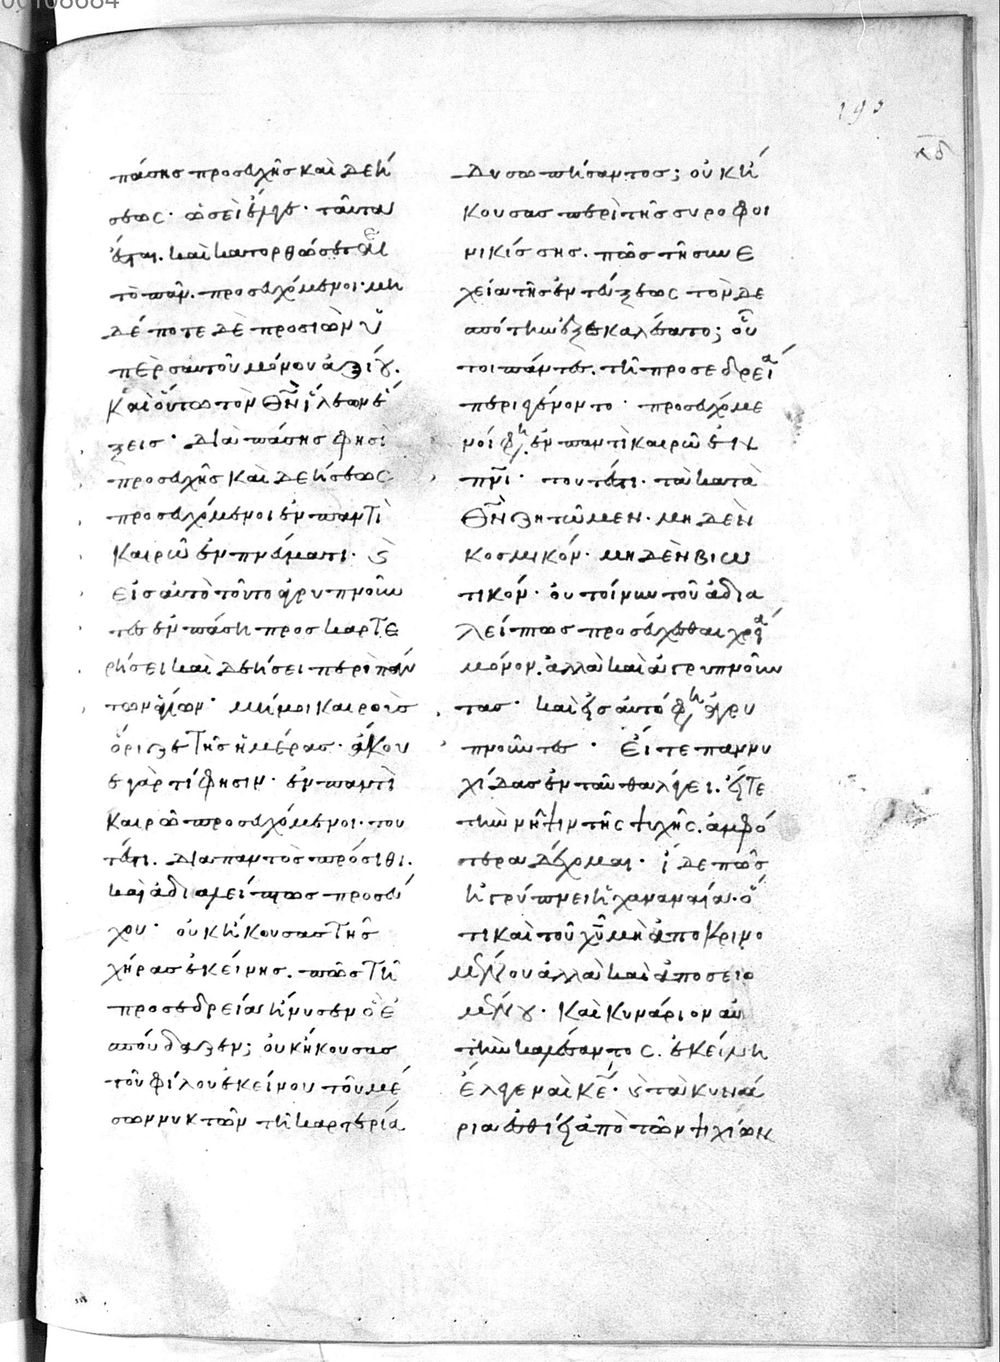 193
κδ
πάσης προσευχῆς καὶ δεή
σεως· ὡσεὶ ἔλεγε· ταῦτα
ἔσται. καὶ κατορθώσετε
τὸ πᾶν. προσευχόμενοι· μη
δέποτε δὲ προσιὼν ὑ
πὲρ σαυτοῦ μόνον ἀξίου.
καὶ οὕτω τὸν θν̄ ἵλεων ἕ
ξεις· διὰ πάσης φησὶ
προσευχῆς καὶ δεήσεως
προσευχόμενοι ἐν παντὶ
καιρῶ ἐν πνεύματι· καὶ
εἰς αὐτὸ τοῦτο ἀγρυπνοῦν
τες ἐν πάση προσκαρτε
ρήσει καὶ δεήσει περὶ πάν
των ἁγίων· μή μοι καιροὺς
ὅριζε τῆς ἡμέρας· ἄκου
ε γὰρ τί φησιν· ἐν παντὶ
καιρῶ προσευχόμενοι· του
τέστι. διαπαντὸς πρόσιθι.
καὶ ἀδιαλείπτως προσεύ
χου· οὐκ ἤκουσας τῆς
χήρας ἐκείνης. πῶς τῆ
προσεδρεία ἤνυσεν ὃ ἐ
σπούδαζεν; οὐκ ἤκουσας
τοῦ φίλου ἐκείνου τοῦ μέ
σων νυκτῶν τῆ καρτερία
δυσωπήσαντος; οὐκ ἤ
κουσας περὶ τῆς συροφοι
νικίσσης. πῶς τῆ συνε
χεία τῆς ἐντεύξεως τὸν δε
σπότην ἐξεκαλέσατο; οὗ
τοι πάντες. τῆ προσεδρεία
περιεγένοντο· προσευχόμε
νοί φη. ἐν παντὶ καιρῶ ἐν
πνι· τουτέστι. τὰ κατὰ
θν̄ ζητῶμεν. μηδὲν
κοσμικόν· μηδὲν βιω
τικόν· οὐ τοίνυν τοῦ ἀδια
λείπτως προσεύχεσθαι χρεία
μόνον. ἀλλὰ καὶ ἀγρυπνοῦν
τας· καὶ εἰς αὐτό φη ἀγρυ
πνοῦντες· εἴτε παννυ
χίδας ἐνταῦθα λέγει. εἴτε
τὴν νῆψιν τῆς ψυχῆς. ἀμφό
τερα δέχομαι· ἴδε πῶς
ἠγρύπνει ἡ χαναναία· ὅ
τι καὶ τοῦ χῡ μὴ ἀποκρινο
μένου ἀλλὰ καὶ ἀποσειο
μένου· καὶ κυνάριον αὐ
τὴν καλέσαντος. ἐκείνη
ἔλεγε ναὶ κε̄· καὶ τὰ κυνά
ρια ἐσθίει ἀπὸ τῶν ψιχίων